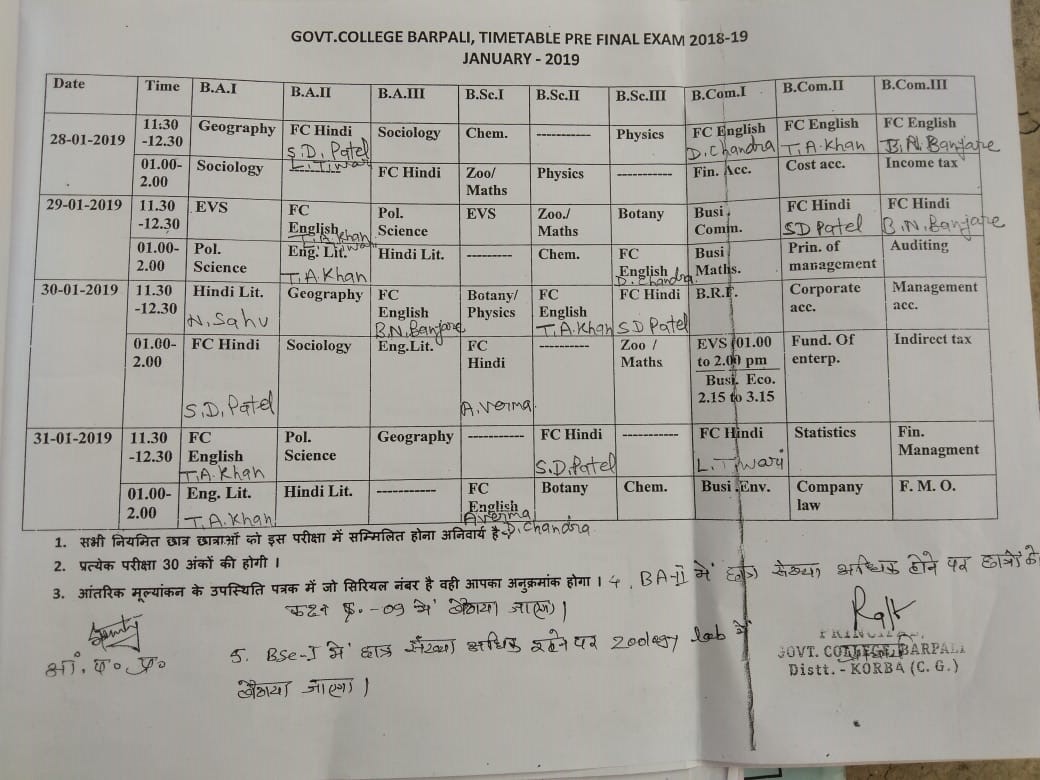 GOVT.COLLEGE BARPALI, TIMETABLE PRE FINAL EXAM 2018-19
JANUARY - 2019
Date Time B.A.I B.A.II B.A.III B.Sc.I B.Sc.II B.Sc.III B.Com.I B.Com.II B.Com.III
28-01-2019 11:30 -12.30 Geography FC Hindi S.D. Patel L. Tiwari Sociology Chem. ---------- Physics FC English D. Chandra FC English T.A. Khan FC English B.N. Banjare
01.00-2.00 Sociology FC Hindi Zoo/ Maths Physics ---------- Fin. Acc. Cost acc. Income tax
29-01-2019 11.30 -12.30 EVS FC English T.A. Khan Pol. Science EVS Zoo./ Maths Botany Busi Comm. FC Hindi SD Patel FC Hindi B.N. Banjare
01.00-2.00 Pol. Science Eng. Lit. T.A. Khan Hindi Lit. -------- Chem. FC English D. Chandra Busi Maths. Prin. of management Auditing
30-01-2019 11.30 -12.30 Hindi Lit. N. Sahu Geography FC English B.N. Banjare Botany/ Physics FC English T.A. Khan FC Hindi SD Patel B.R.F. Corporate acc. Management acc.
01.00-2.00 FC Hindi S.D. Patel Sociology Eng.Lit. FC Hindi A. Verma ---------- Zoo / Maths EVS (01.00 to 2.00 pm Busi. Eco. 2.15 to 3.15 Fund. Of enterp. Indirect tax
31-01-2019 11.30 -12.30 FC English T.A. Khan Pol. Science Geography ----------- FC Hindi S.D. Patel ----------- FC Hindi L. Tiwari Statistics Fin. Managment
01.00-2.00 Eng. Lit. T.A. Khan Hindi Lit. ----------- FC English A Verma D. Chandra Botany Chem. Busi .Env. Company law F. M. O.
1. सभी नियमित छात्र छात्राओं को इस परीक्षा में सम्मिलित होना अनिवार्य है
2. प्रत्येक परीक्षा 30 अंकों की होगी ।
3. आंतरिक मूल्यांकन के उपस्थिति पत्रक में जो सिरियल नंबर है वही आपका अनुक्रमांक होगा ।
4. BA-I में छात्र संख्या अधिक होने पर छात्रों को
कक्ष क्र.-09 में बैठाया जाएगा।
5. BSc-I में छात्र संख्या अधिक होने पर Zoology lab में
बैठाया जाएगा।
PRINCIPAL
GOVT. COLLEGE BARPALI
Distt. - KORBA (C. G.)